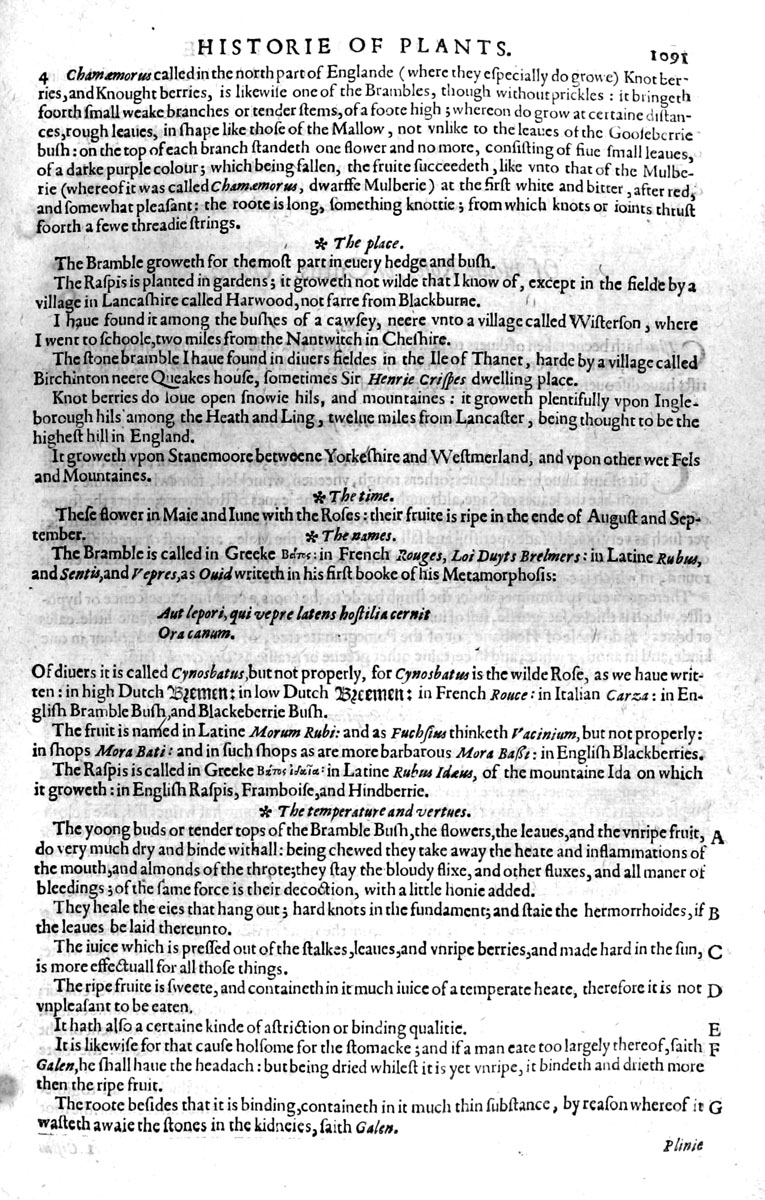 HISTORIE OF PLANTS. 1091
4 Chamæmorus called in the north part of Englande (where they eſpecially do growe) Knot ber-
ries, and Knought berries, is likewiſe one of the Brambles, though without prickles: it bringeth
foorth ſmall weake branches or tender ſtems, of a foote high; whereon do grow at certaine diſtan-
ces, rough leaues, in ſhape like thoſe of the Mallow, not vnlike to the leaues of the Gooſeberrie
buſh: on the top of each branch ſtandeth one flower and no more, conſiſting of fiue ſmall leaues,
of a darke purple colour; which being fallen, the fruite ſucceedeth, like vnto that of the Mulbe-
rie (whereof it was called Chamæmorus, dwarffe Mulberie) at the firſt white and bitter, after red,
and ſomewhat pleaſant: the roote is long, ſomething knottie; from which knots or ioints thruſt
foorth a fewe threadie ſtrings.
✻ The place.
The Bramble groweth for the moſt part in euery hedge and buſh.
The Raſpis is planted in gardens; it groweth not wilde that I know of, except in the fielde by a
village in Lancaſhire called Harwood, not farre from Blackburne.
I haue found it among the buſhes of a cawſey, neere vnto a village called Wiſterſon, where
I went to ſchoole, two miles from the Nantwitch in Cheſhire.
The ſtone bramble I haue found in diuers fieldes in the Ile of Thanet, harde by a village called
Birchinton neere Queakes houſe, ſometimes Sir Henrie Criſpes dwelling place.
Knot berries do loue open ſnowie hils, and mountaines: it groweth plentifully vpon Ingle-
borough hils among the Heath and Ling, twelue miles from Lancaſter, being thought to be the
higheſt hill in England.
It groweth vpon Stanemoore betweene Yorkeſhire and Weſtmerland, and vpon other wet Fels
and Mountaines.
✻ The time.
Theſe flower in Maie and Iune with the Roſes: their fruite is ripe in the ende of Auguſt and Sep-
tember. ✻ The names.
The Bramble is called in Greeke Βάτος: in French Rouges, Loi Duyts Brelmers: in Latine Rubus,
and Sentis, and Vepres, as Ouid writeth in his firſt booke of his Metamorphoſis:
Aut lepori, qui vepre latens hoſtilia cernit
Ora canum.
Of diuers it is called Cynosbatus, but not properly, for Cynosbatus is the wilde Roſe, as we haue writ-
ten: in high Dutch Bꝛemen: in low Dutch Bꝛeemen: in French Rouce: in Italian Garza: in En-
gliſh Bramble Buſh, and Blackeberrie Buſh.
The fruit is named in Latine Morum Rubi: and as Fuchſius thinketh Vacinium, but not properly:
in ſhops Mora Bati: and in ſuch ſhops as are more barbarous Mora Baſti: in Engliſh Blackberries.
The Raſpis is called in Greeke Βάτος ἰδαῖα: in Latine Rubus Idæus, of the mountaine Ida on which
it groweth: in Engliſh Raſpis, Framboiſe, and Hindberrie.
✻ The temperature and vertues.
The yoong buds or tender tops of the Bramble Buſh, the flowers, the leaues, and the vnripe fruit, A
do very much dry and binde withall: being chewed they take away the heate and inflammations of
the mouth, and almonds of the throte; they ſtay the bloudy flixe, and other fluxes, and all maner of
bleedings; of the ſame force is their decoction, with a little honie added.
They heale the eies that hang out; hard knots in the fundament; and ſtaie the hermorrhoides, if B
the leaues be laid thereunto.
The iuice which is preſſed out of the ſtalkes, leaues, and vnripe berries, and made hard in the ſun, C
is more effectuall for all thoſe things.
The ripe fruite is ſweete, and containeth in it much iuice of a temperate heate, therefore it is not D
vnpleaſant to be eaten.
It hath alſo a certaine kinde of aſtriction or binding qualitie. E
It is likewiſe for that cauſe holſome for the ſtomacke; and if a man eate too largely thereof, ſaith F
Galen, he ſhall haue the headach: but being dried whileſt it is yet vnripe, it bindeth and drieth more
then the ripe fruit.
The roote beſides that it is binding, containeth in it much thin ſubſtance, by reaſon whereof it G
waſteth awaie the ſtones in the kidneies, ſaith Galen.
Plinie